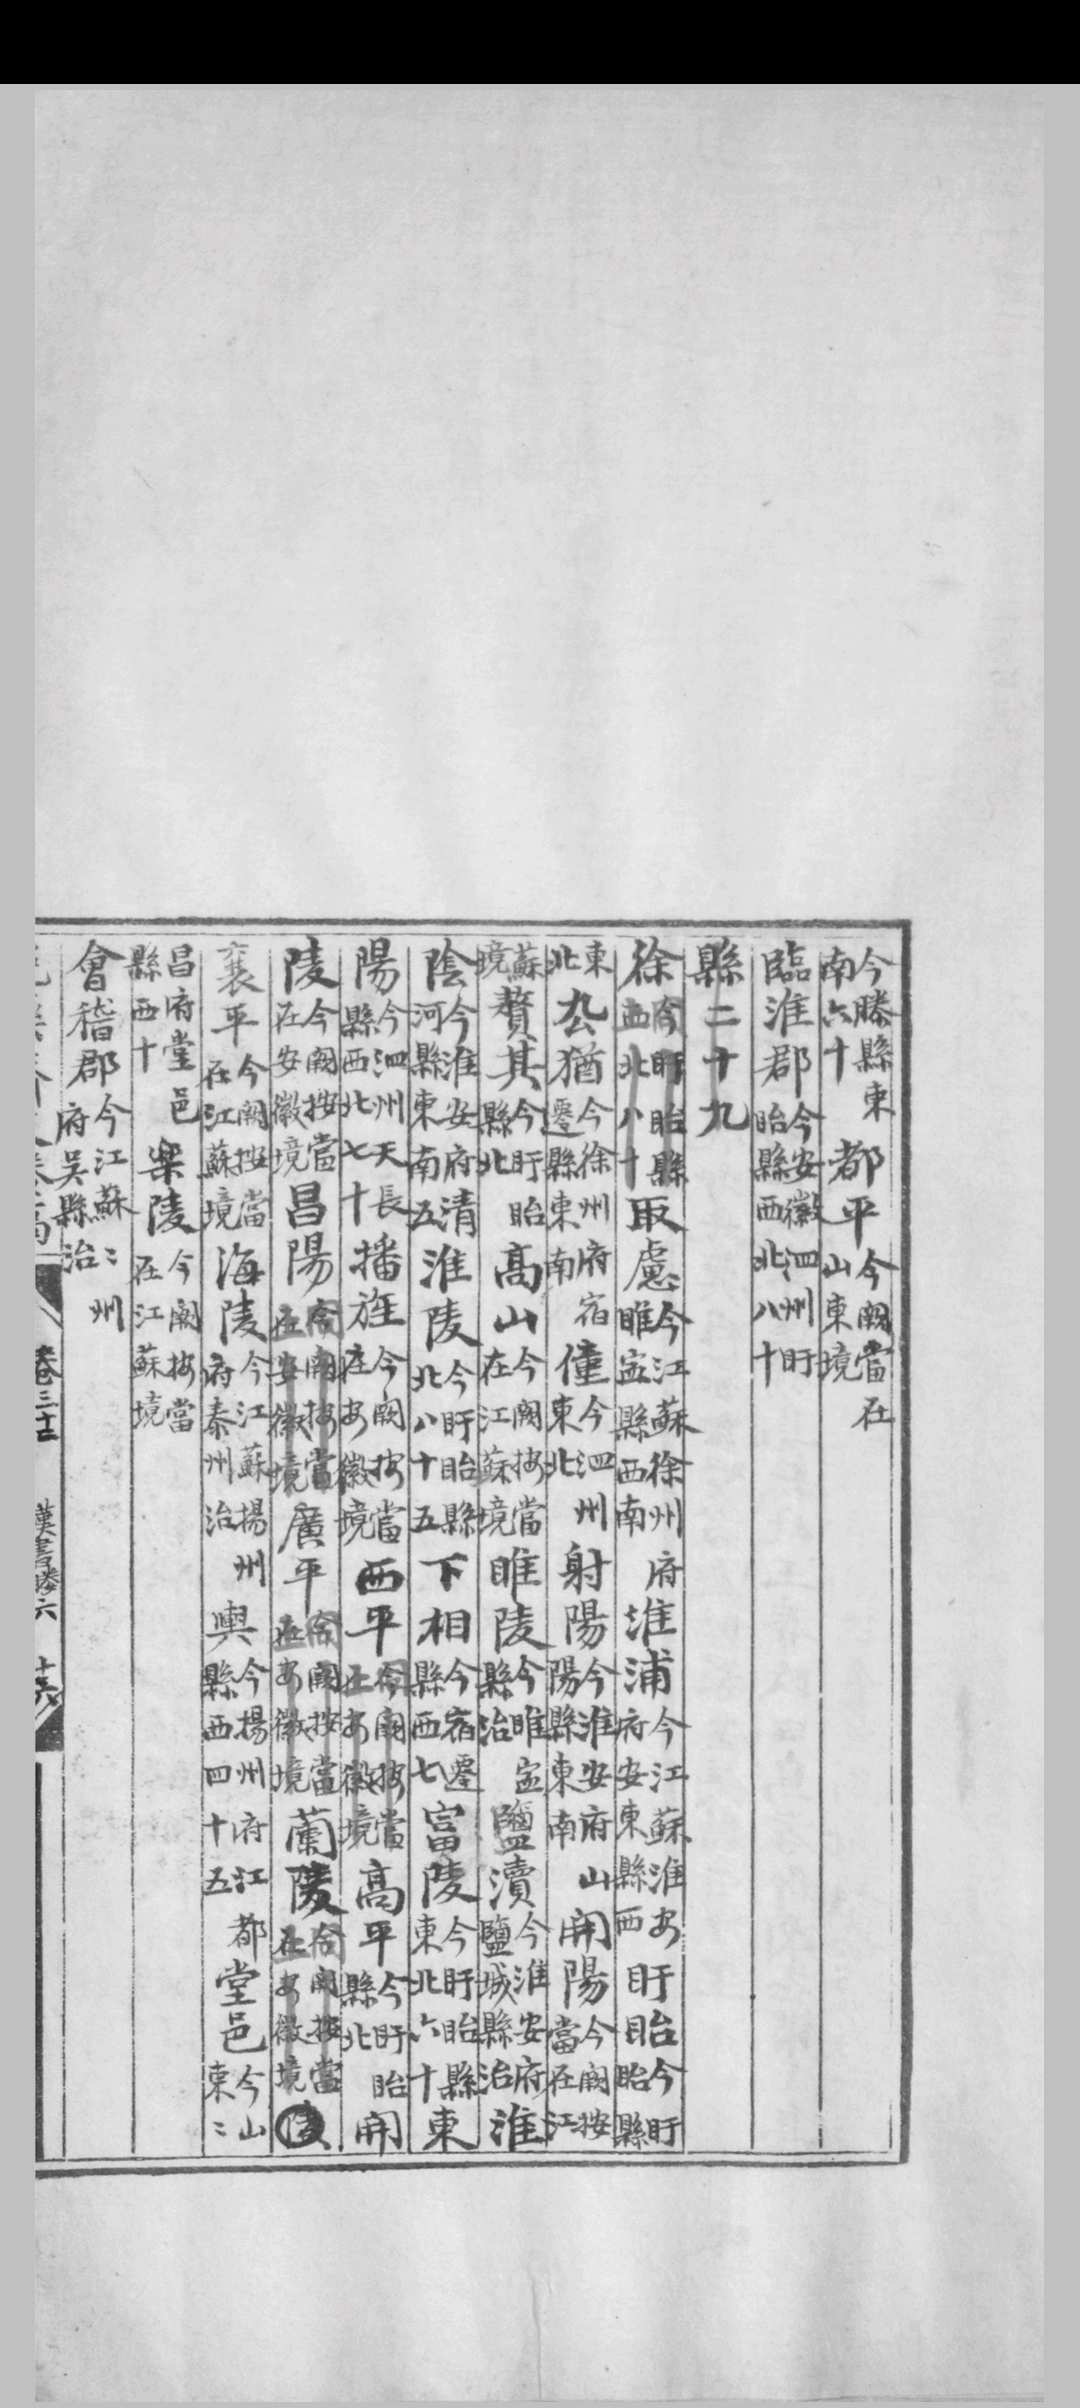 今滕縣東南六十都平今闕當在山東境
臨淮郡今安徽泗州盱眙縣西北八十
縣二十九
徐今盱眙縣西北八十取慮今江蘇徐州府睢寍縣西南淮浦今江蘇淮安府安東縣西盱眙今盱眙縣
東北厹猶今徐州府宿遷縣東南僮今泗州東北射陽今淮安府山陽縣東南開陽今闕按當在江
蘇境贅其今盱眙縣北高山今闕按當在江蘇境睢陵今睢寍縣治鹽瀆今淮安府鹽城縣治淮
陰今淮安府清河縣東南五淮陵今盱眙縣北八十五下相今宿遷縣西七富陵今盱眙縣東北六十東
陽今泗州天長縣西北七十播旌今闕按當在安徽境西平今闕按當在安徽境高平今盱眙縣北開
陵今闕按當在安徽境昌陽今闕按當在安徽境廣平今闕按當在安徽境蘭陵今闕按當在安徽境陵
襄平今闕按當在江蘇境海陵今江蘇揚州府泰州治輿今揚州府江都縣西四十五堂邑今山東
昌府堂邑縣西十樂陵今闕按當在江蘇境
會稽郡今江蘇州府吳縣治